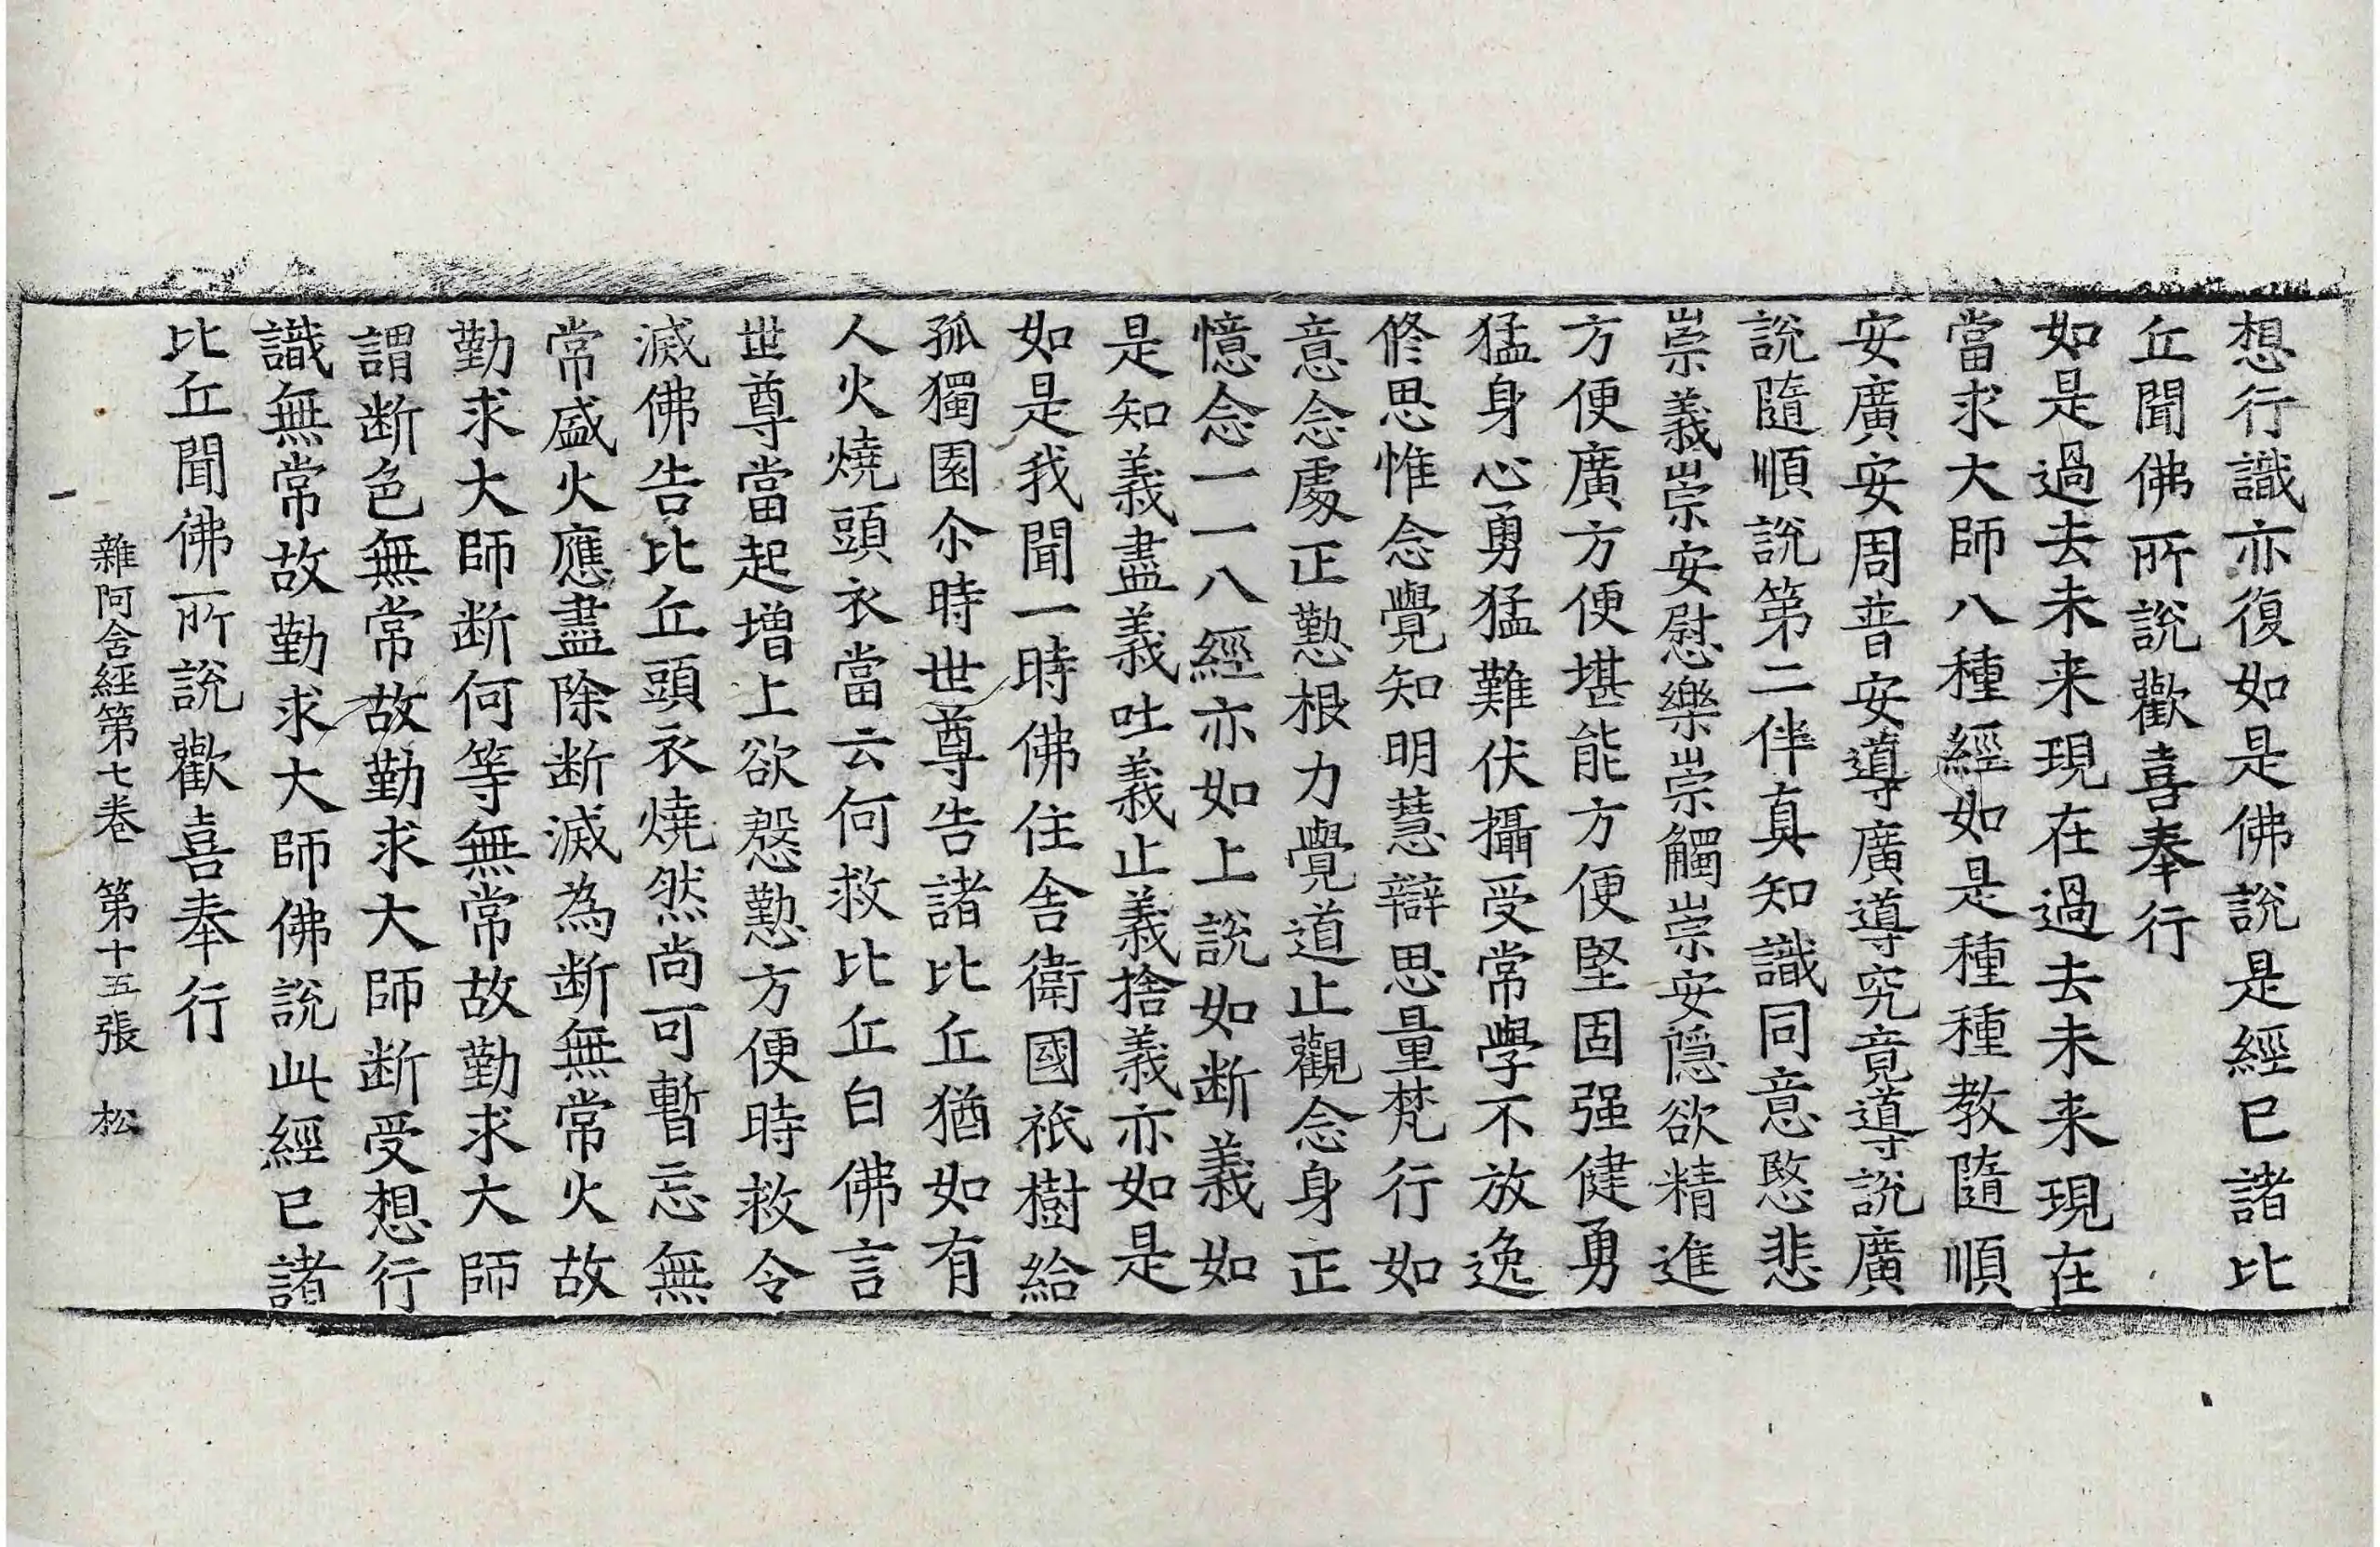 想行識亦復如是佛說是經已諸比
丘聞佛所說歡喜奉行
如是過去未来現在過去未来現在
當求大師八種經如是種種教隨順
安廣安周普安導廣導究竟導說廣
說隨順說第二伴真知識同意愍悲
崇義崇安慰樂崇觸崇安隱欲精進
方便廣方便堪能方便堅固强健勇
猛身心勇猛難伏攝受常學不放逸
修思惟念覺知明慧辯思量梵行如
意念處正懃根力覺道止觀念身正
憶念一一八經亦如上說如断義如
是知義盡義吐義止義捨義亦如是
如是我聞一時佛住舎衛國祇樹給
孤獨園尒時世尊告諸比丘猶如有
人火燒頭衣當云何救比丘白佛言
世尊當起増上欲慇懃方便時救令
滅佛告比丘頭衣燒然尚可暫忘無
常盛火應盡除断滅為断無常火故
勤求大師断何等無常故勤求大師
謂断色無常故勤求大師断受想行
識無常故勤求大師佛說此經已諸
比丘聞佛所說歡喜奉行
雜阿含經第七卷 第十五張 松